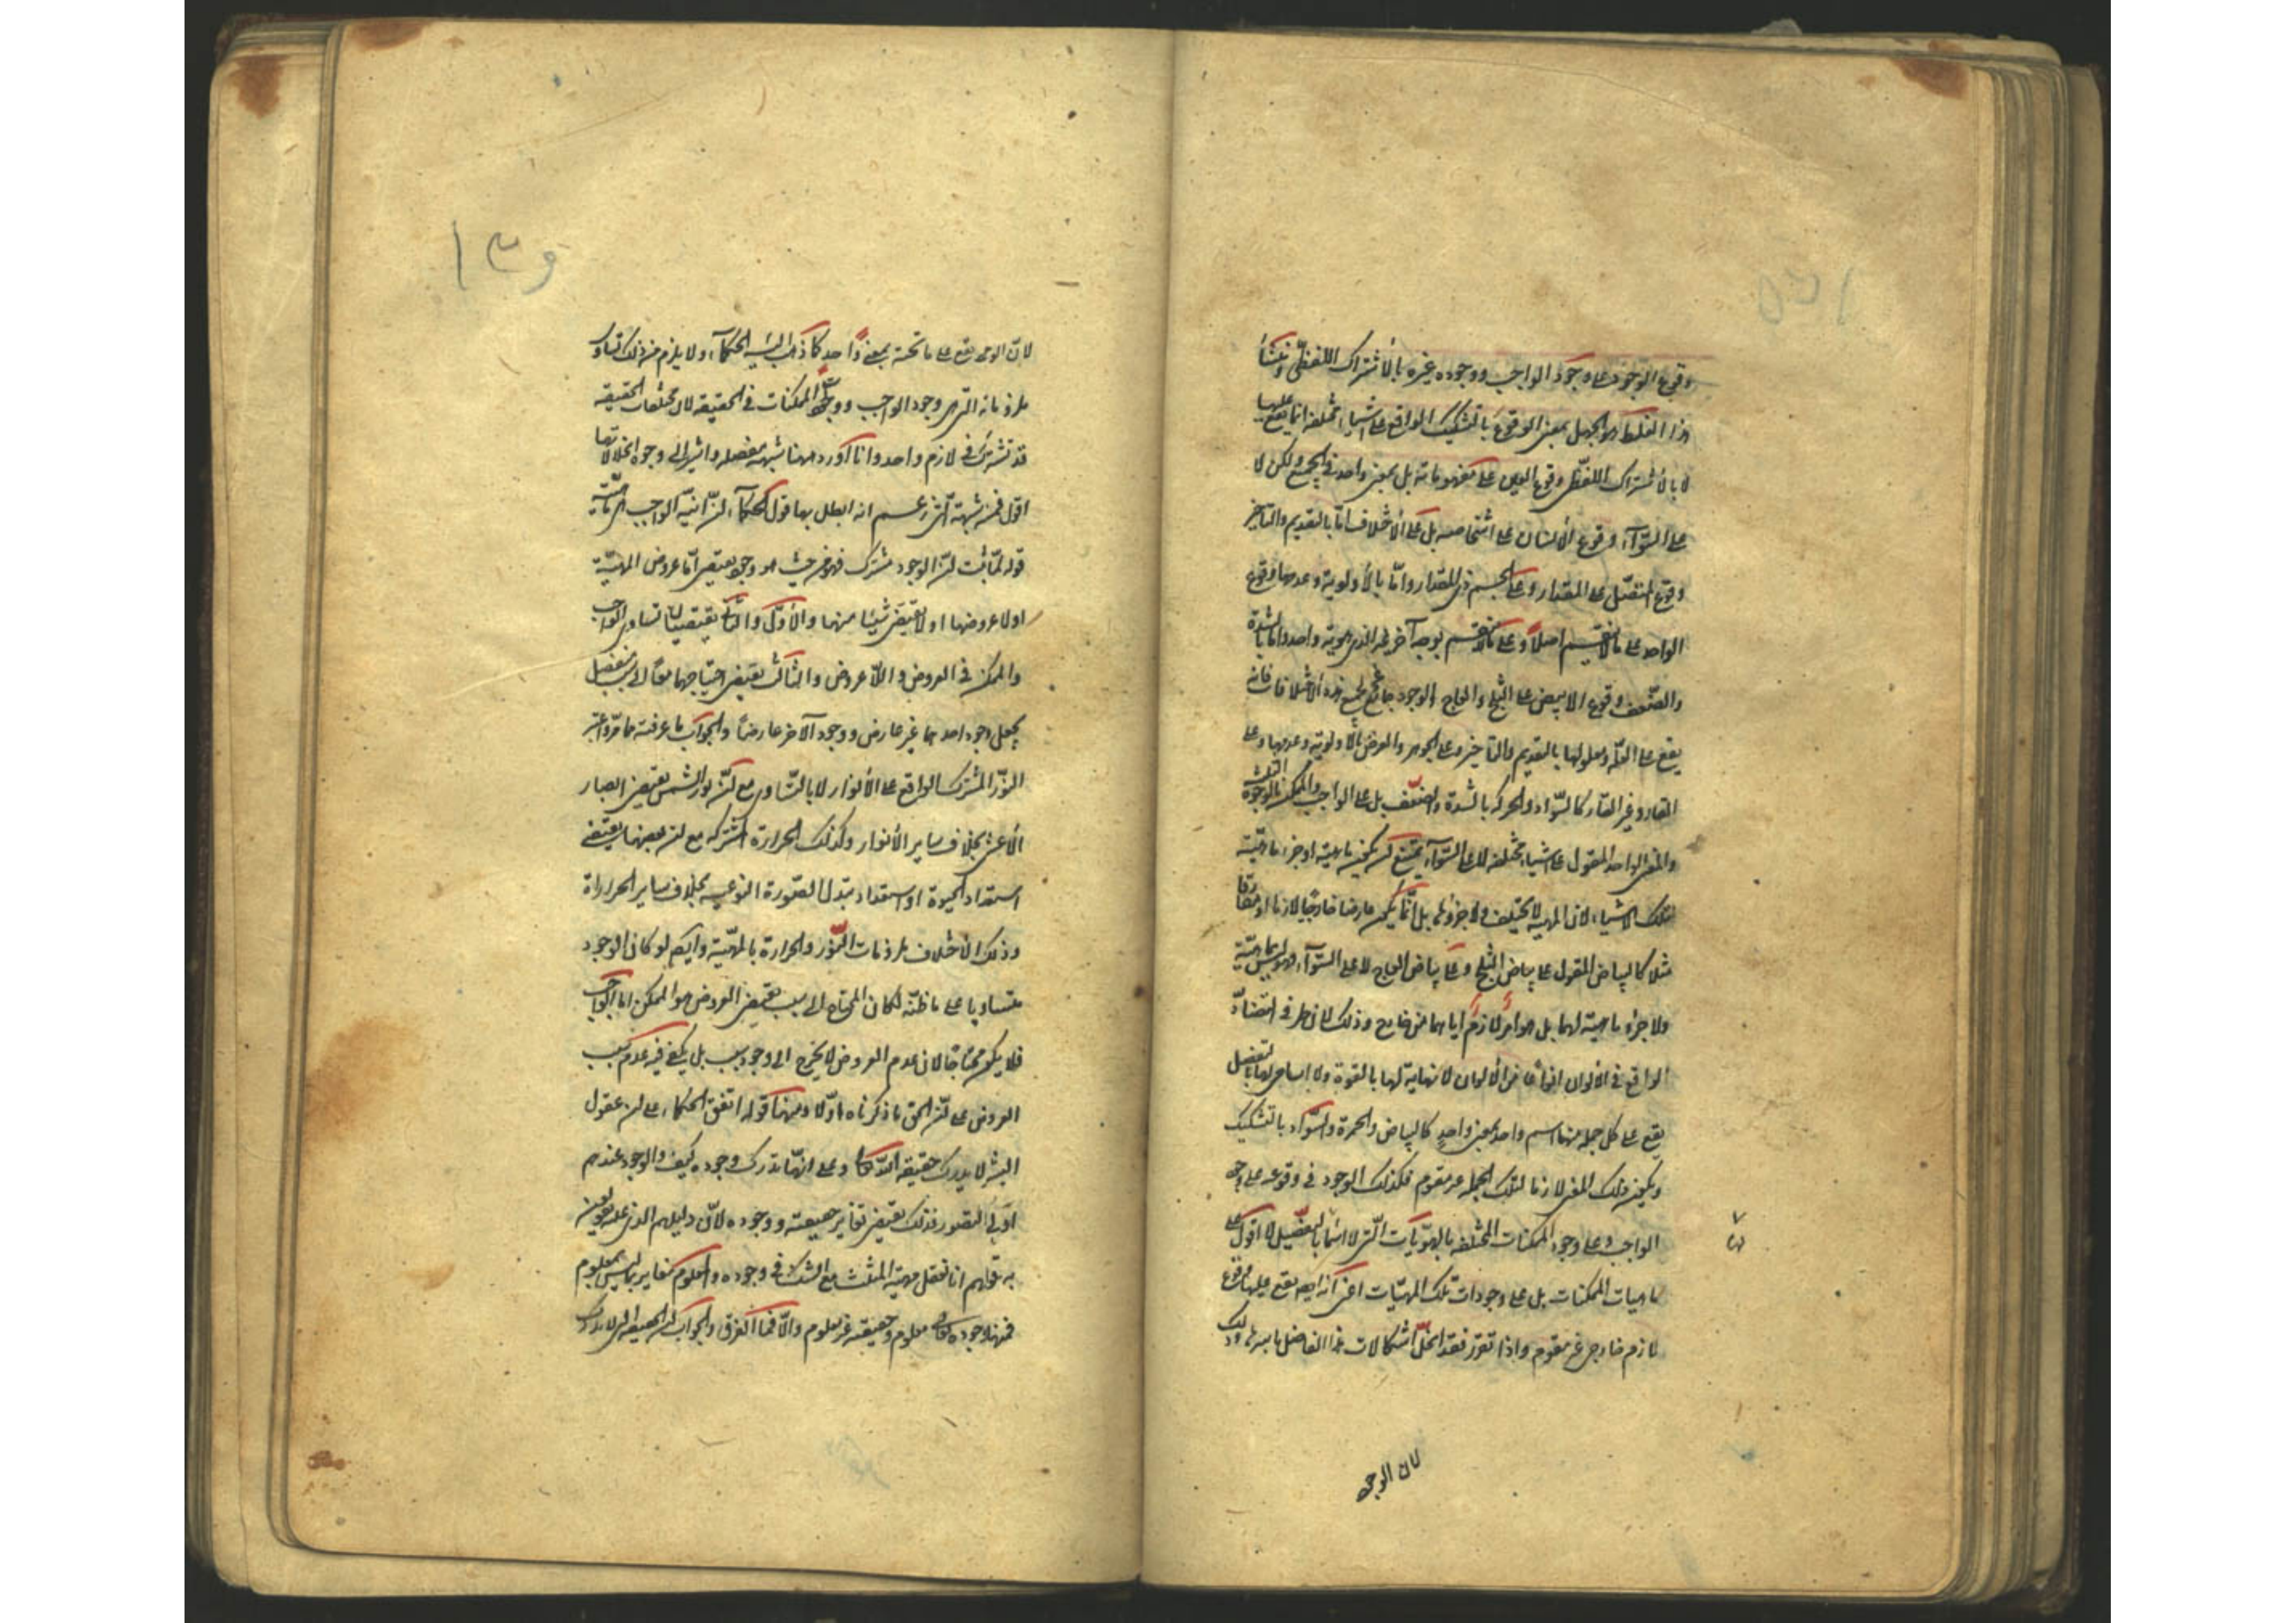 وقوع الوجود على وجود الواجب ووجود غيره بالاشتراك اللفظي ومنشأ
هذا الغلط هو الجهل بمعنى الوقوع بالتشكيك الواقع على اشياء مختلفة انما يقع عليها
لا بالاشتراك اللفظي وقوع العين على مفهوماته بل بمعنى واحد في الجميع ولكن لا
على السوآء وقوع الانسان على اشخاصه بل على الاختلاف اما بالتقديم والتأخير
وقوع المتصل على المقدار وعلى الجسم ذي المقدار واما بالأولوية وعدمها وقوع
الواحد على ما لا ينقسم اصلاً وعلى ما ينقسم بوجه آخر غير الذي هو به واحد واما بالشدة
والضعف وقوع الابيض على الثلج والعاج والوجود جامع لجميع هذه الاختلافات فانه
يقع على العلة ومعلولها بالتقديم والتأخير وعلى الجوهر والعرض بالأولوية وعدمها وعلى
القار وغير القار كالسواد والحركة بالشدة والضعف بل على الواجب والممكن بالوجوه الثلثة
والمعنى الواحد المقول على اشياء مختلفة لا على السوآء يمتنع ان يكون ماهية او جزء ماهية
لتلك الاشياء لان المهية لا تختلف ولا جزؤها بل انما يكون عارضا خارجيا لازما او مفارقا
مثلا كالبياض المقول على بياض الثلج وعلى بياض العاج لا على السوآء فهو ليس بماهية
ولا جزء ماهية لهما بل هو امر لازم اياهما من خارج وذلك لان طرفي التضاد
الواقع في الالوان انواعا من الألوان لا نهاية لها بالقوة ولا اسامي لها بالتفصيل
يقع على كل جملة منها اسم واحد بمعنى واحد كالبياض والحمرة والسواد بالتشكيك
ويكون ذلك المعنى لازما لتلك الجملة غير مقوم فكذلك الوجود في وقوعه على وجود
الواجب وعلى وجود الممكنات المختلفة بالهويات التي لا اسماء لها بالتفصيل لا اقول على
ماهيات الممكنات بل على وجودات تلك المهيات اعني انه ايضا يقع عليها وقوع
لازم خارجي غير مقوم واذا تقرر فقد انحل اشكالات هذا الفاضل باسرها وذلك
لان الوجود
لان الوجود يقع على ما تحته بمعنى واحد كما ذهب اليه الحكمآء ولا يلزم من ذلك تساوي
ملزوماته التي هي وجود الواجب ووجود الممكنات في الحقيقة لان مختلفات الحقيقة
قد تشترك في لازم واحد وانا اورد ههنا شبهه مفصلة واشير الى وجوه انحلالاتها
اقول فمن شبهته التي زعم انه ابطل بها قول الحكمآء ان انية الواجب هي ماهيته
قوله لما ثبت ان الوجود مشترك فهو من حيث هو وجود يقتضي اما عروض المهية
او لا عروضها او لا يقتضي شيئا منهما والأول والثاني يقتضيان تساوي الواجب
والممكن في العروض واللاعروض والثالث يقتضي احتياجهما معا الى سبب منفصل
يجعل وجود احدهما غير عارض ووجود الآخر عارضا والجواب ما عرفته مما مر واعتبر
النور المشترك الواقع على الأنوار لا بالتساوي مع ان نور الشمس يقتضي ابصار
الاعشى بخلاف ساير الأنوار وكذلك الحرارة المشتركة مع ان بعضها يقتضي
استعداد الحيوة او استعداد تبدل الصورة النوعية بخلاف ساير الحرارات
وذلك لاختلاف ملزومات النور والحرارة بالمهية وايضا لو كان الوجود
متساويا على ما ظنه لكان المحتاج الى سبب يقتضي العروض هو الممكن اما الواجب
فلا يكون محتاجا لان عدم العروض لا يحوج الى وجود سبب بل يكفي فيه عدم سبب
العروض على ان الحق ما ذكرناه اولا ومنها قوله اتفق الحكماء على ان عقول
البشر لا يدرك حقيقة الله تعالى وعلى انها تدرك وجوده كيف والوجود عندهم
اولى التصور فذلك يقتضي تغاير حقيقته ووجوده لان دليلهم الذي عليه يعولون
به قولهم انا نعقل مهية المثلث مع الشك في وجوده والمعلوم مغاير لما ليس بمعلوم
فههنا وجوده تعالى معلوم وحقيقته غير معلوم والا فما الفرق والجواب ان الحقيقة التي لا تدرك